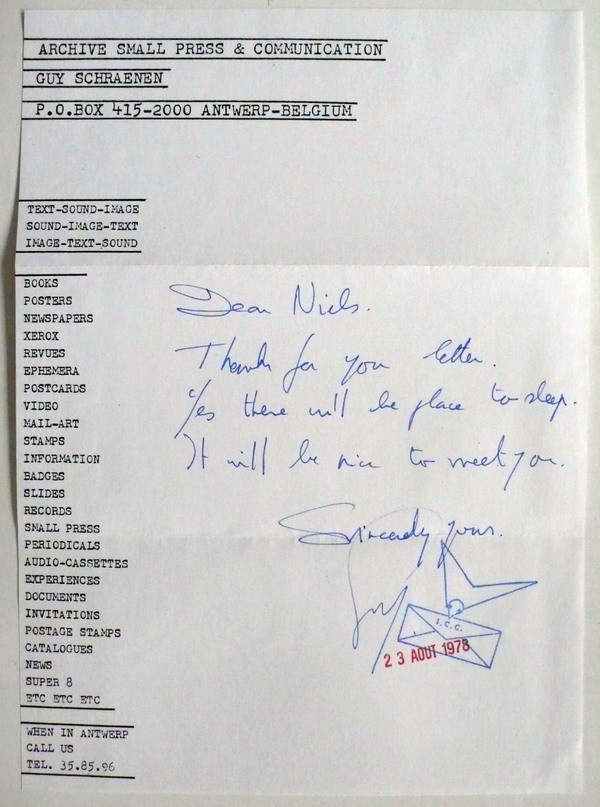 ARCHIVE SMALL PRESS & COMMUNICATION
GUY SCHRAENEN
P.O.BOX 415-2000 ANTWERP-BELGIUM
TEXT-SOUND-IMAGE
SOUND-IMAGE-TEXT
IMAGE-TEXT-SOUND
BOOKS
POSTERS
NEWSPAPERS
XEROX
REVUES
EPHEMERA
POSTCARDS
VIDEO
MAIL-ART
STAMPS
INFORMATION
BADGES
SLIDES
RECORDS
SMALL PRESS
PERIODICALS
AUDIO-CASSETTES
EXPERIENCES
DOCUMENTS
INVITATIONS
POSTAGE STAMPS
CATALOGUES
NEWS
SUPER 8
ETC ETC ETC
WHEN IN ANTWERP
CALL US
TEL. 35.85.96
Dear Niels.
Thank for you letter.
Yes there will be place to sleep.
It will be nice to meet you.
Sincerely yours.
Guy
I.C.C.
23 AOUT 1978